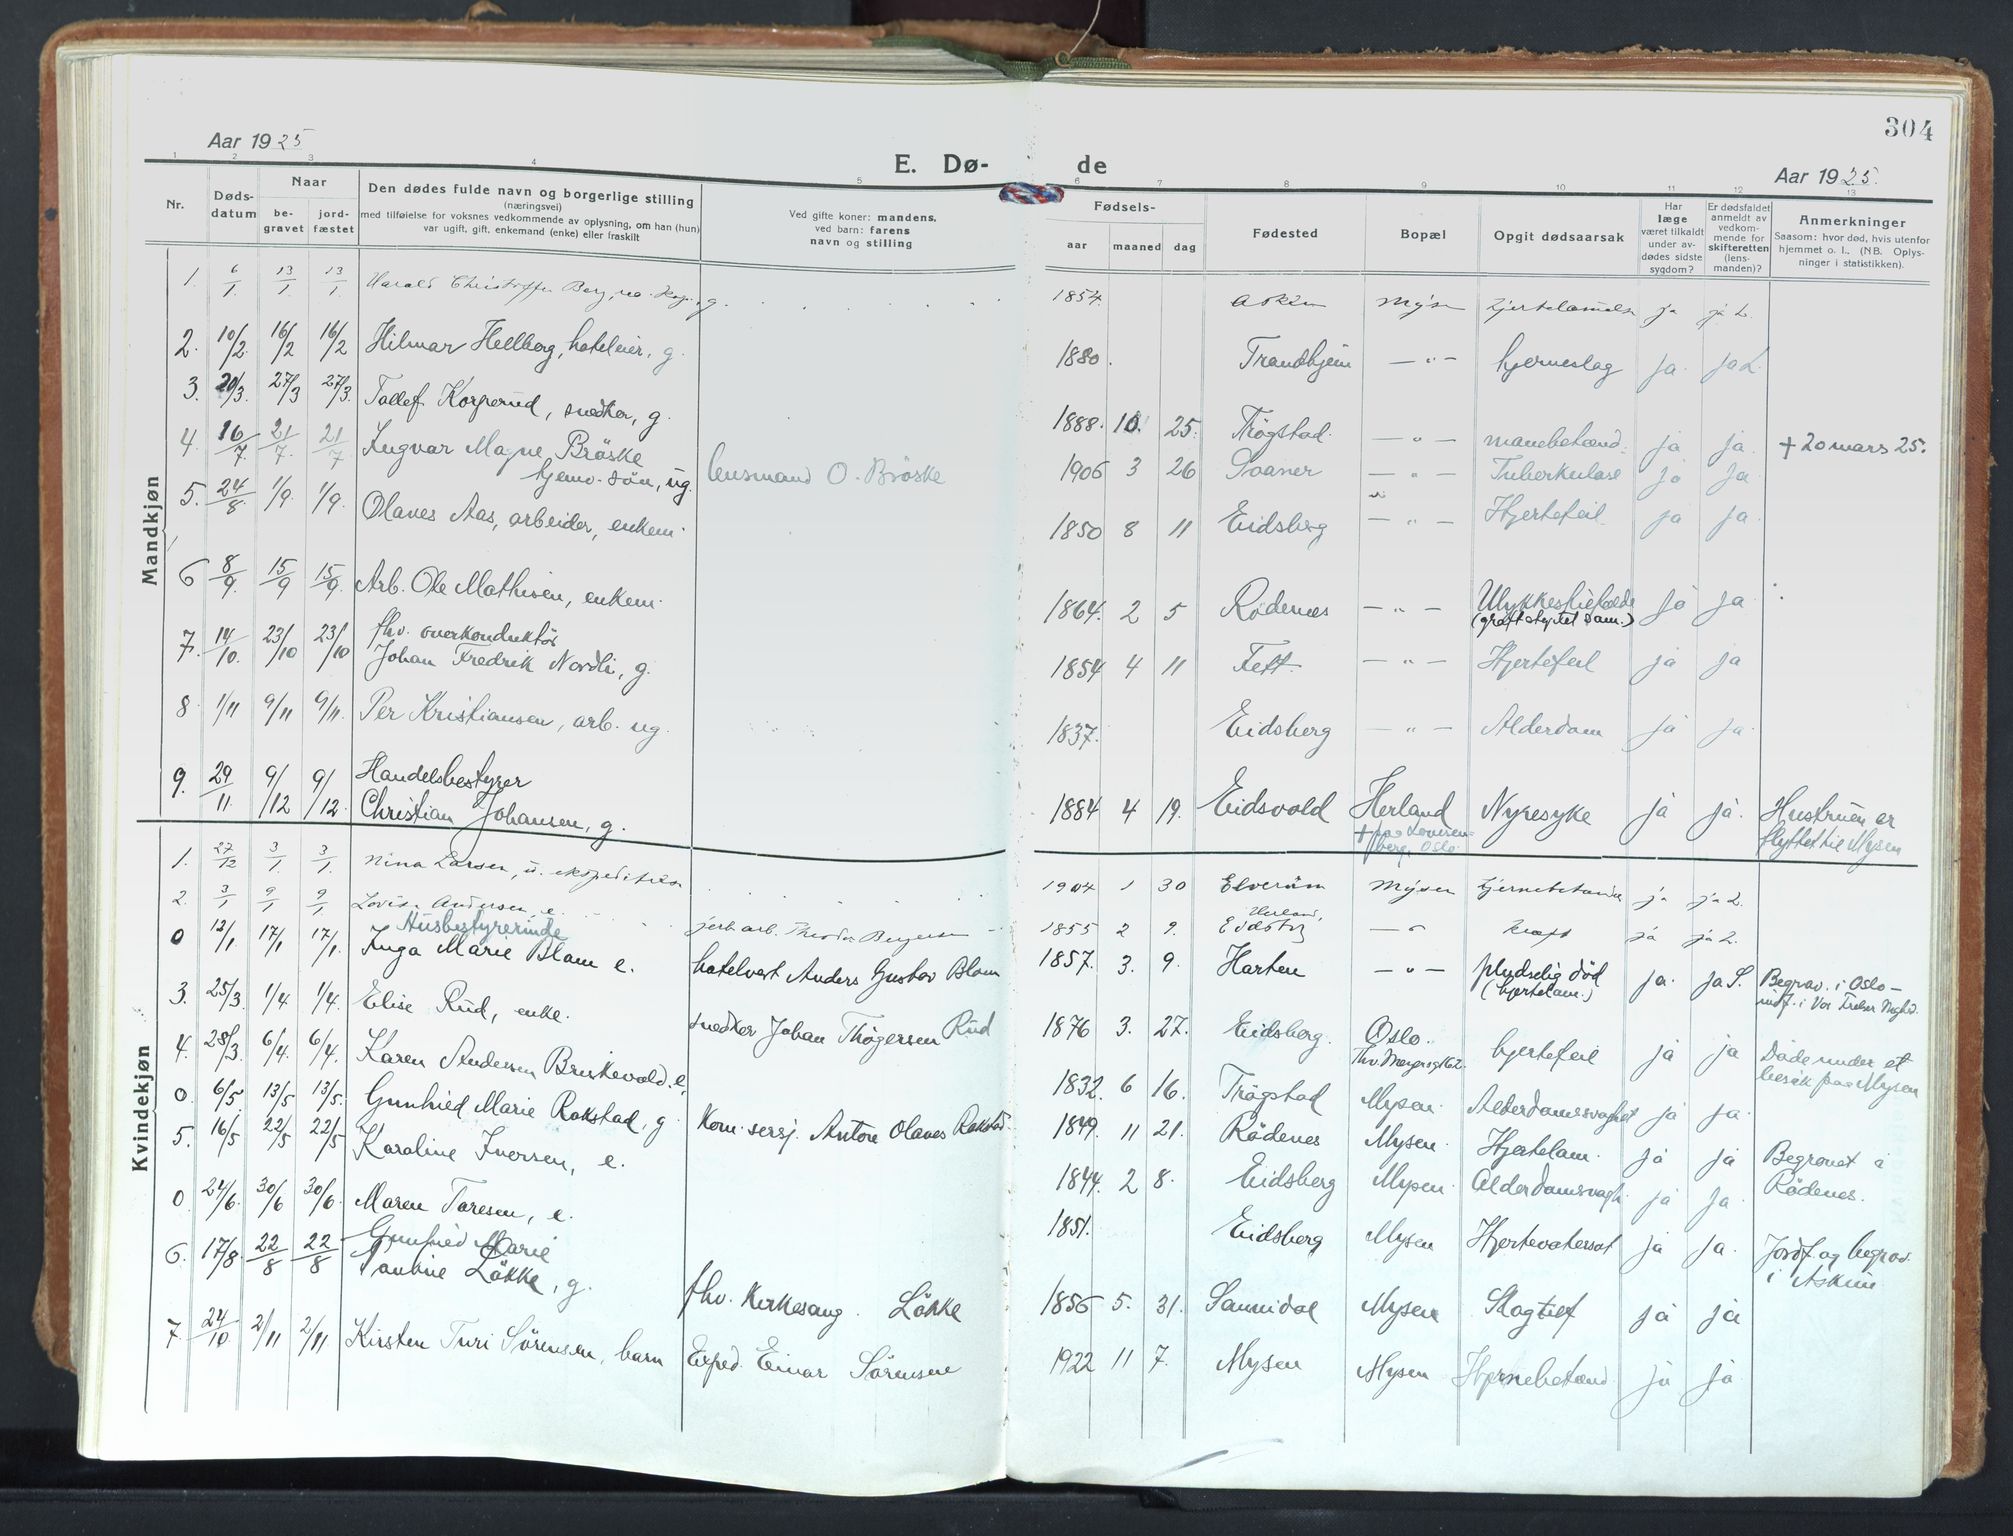 304
Aar 1925
E. Dø- de
Aar 1925.
1 2 3 4 5 6 7 8 9 10 11 12 13
Nr.
Døds-
datum
Naar
be-
gravet
jord-
fæstet
Den dødes fulde navn og borgerlige stilling
(næringsvei)
med tilføielse for voksnes vedkommende av oplysning, om han (hun)
var ugift, gift, enkemand (enke) eller fraskilt
Ved gifte koner: mandens,
ved barn: farens
navn og stilling
Fødsels-
aar maaned dag
Fødested
Bopæl
Opgit dødsaarsak
Har
læge
været tilkaldt
under av-
dødes sidste
sygdom?
Er dødsfaldet
anmeldt av
vedkom-
mende for
skifteretten
(lens-
manden)?
Anmerkninger
Saasom: hvor død, hvis utenfor
hjemmet o. l., (NB. Oplys-
ninger i statistikken).
Mandkjøn
1. 6/1. 13/1. 13/1. Harald Christoffer Berg, g. 1854. Askim Mysen hjertelammelse ja ja L.
2. 10/2. 16/2 16/2 Hilmar Hellberg, hoteleier, g. 1880. Trondhjem — " — hjerneslag ja. ja L.
3. 20/3. 27/3 27/3. Tollef Korperud, snedker, g. 1888. 10. 25. Trøgstad. — " — mavebetænd. ja ja. + 20 mars 25.
4. 16/7. 21/7. 21/7 Ingvar Magne Bräske
hjemv. søn, ug. lensmand O. Bräske 1906 3 26 Soaner — " — Tuberkulose ja ja.
5. 24/8 1/9. 1/9. Olaves Aas, arbeider, enkem. 1850 8 11 Eidsberg — " — Hjertefeil. ja ja.
6 8/9. 15/9 15/9. Arb. Ole Mathisen, enkem. 1864. 2 5 Rødenes — " — Ulykkestilfælde
(grøft styrtet sam.) ja ja.
7. 14/10. 23/10 23/10 fhv. overkonduktør
Johan Fredrik Nordli, g. 1854 4 11 Fett. — " — Hjertefeil ja ja
8. 1/11 9/11 9/11. Per Kristiansen, arb. ug. 1837. Eidsberg — " — Alderdom ja ja.
9. 29/11. 9/12 9/12. Handelsbestyrer
Christian Johansen, g. 1884 4 19. Eidsvold Herland
+ paa Lovisen-
berg, Oslo. Nyresyke ja ja. Hustruen er
flyttet til Mysen
Kvindekjøn
1. 27/12 3/1. 3/1. Nina Larsen, u. 1904 1 30 Elverum Mysen hjernebetændelse ja ja L.
2. 3/1 9/1 9/1. Lovise Andersen, e. jernb.arb. Theodor Bergersen 1855 2 9. Herland,
Eidsberg — " kræft ja ja L.
0 12/1. 17/1 17/1. Husbestyrerinde
Inga Marie Blom e. hotelvert Anders Gustav Blom 1857. 3. 9. Horten — " — pludselig død
(hjertelam.) ja. ja S. Begrav. i Oslo —
i Vor Frelser
3. 25/3 1/4. 1/4. Elise Rud, enke. snedker Johan Thøgersen Rud 1876 3. 27. Eidsberg. Oslo.
Thv. Meyersgt 62. hjertefeil ja ja Døde under et
besøk paa Mysen
4. 28/3. 6/4. 6/4. Karen Andersen Briskevold. e. 1832. 6 16. Trøgstad Mysen. Alderdomssvaghet ja ja.
0. 6/5. 13/5 13/5. Gunhild Marie Rakstad, g. Kom.sersj. Antore Olaves Rakstad 1849. 11 21. Rødenes Mysen. Hjertelam. ja ja Begravet i
Rødenes.
5. 16/5 22/5 22/5 Karoline Iversen, e. 1844. 2 8. Eidsberg Mysen. Alderdomsvagh. ja ja.
0 24/6. 30/6 30/6 Maren Toresen, e. 1851. Eidsberg Mysen ja ja. Jordf. og begrav.
i Askim
6. 17/8. 22/8 22/8 Gunhild Marie
Pauline Løkke, g. fhv. Kirkesang. Løkke 1856 5. 31. Sannidal Mysen ja ja
7. 24/10 2/11 2/11. Kirsten Turi Sørensen, barn Exped. Einar Sørensen 1922 11 7. Mysen Mysen Hjernebetænd. ja ja